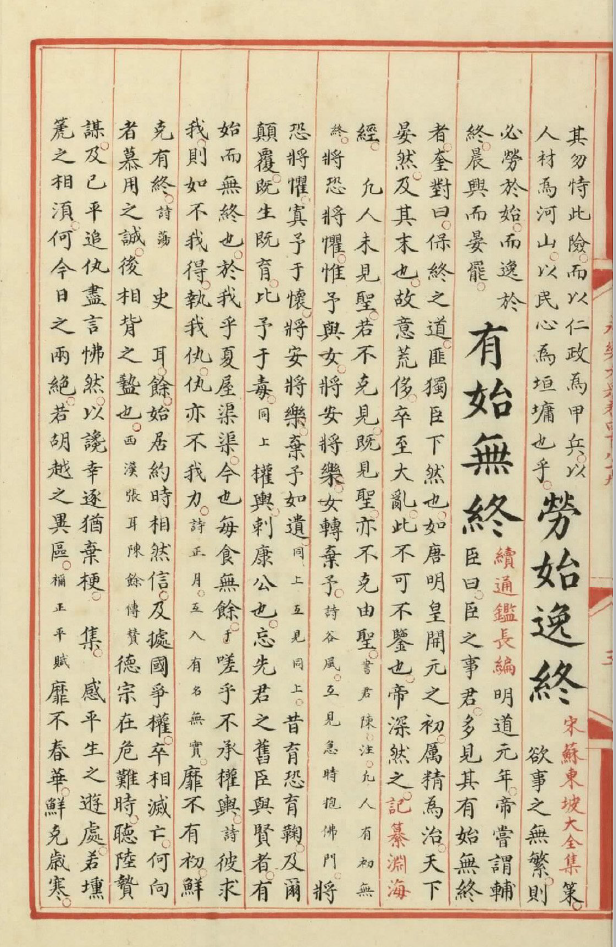 其勿恃此險而以仁政為甲兵以
人材為河山以民心為垣墉也乎
勞始逸終
宋蘇東坡大全集策
欲事之無繁則
必勞於始而逸於
終晨興而晏罷
有始無終
續通鑑長編明道元年帝嘗謂輔
臣曰臣之事君多見其有始無終
者奎對曰保終之道匪獨臣下然也如唐明皇開元之初厲精為治天下
晏然及其末也故意荒侈卒至大亂此不可不鑒也帝深然之記纂淵海
經 凡人未見聖若不克見既見聖亦不克由聖書君陳注凡人有初無
終將恐將懼惟予與女將安將樂女轉棄予詩谷風互見急時抱佛門 將
恐將懼寘予于懷將安將樂棄予如遺同上互見同上昔育恐育鞠及爾
顛覆既生既育比予于毒同上 權輿刺康公也忘先君之舊臣與賢者有
始而無終也於我乎夏屋渠渠今也每食無餘于嗟乎不承權輿詩彼求
我則如不我得執我仇仇亦不我力詩正月互入有名無實靡不有初鮮
克有終詩蕩 史 耳餘始居約時相然信及據國爭權卒相滅亡何向
者慕用之誠後相背之盭也西漢張耳陳餘傳贊德宗在危難時聽陸贄
謀及已平追仇盡言怫然以讒幸逐猶棄梗 集 感平生之遊處若壎
篪之相須何今日之兩絕若胡越之異區禰正平賦靡不春華鮮克歲寒